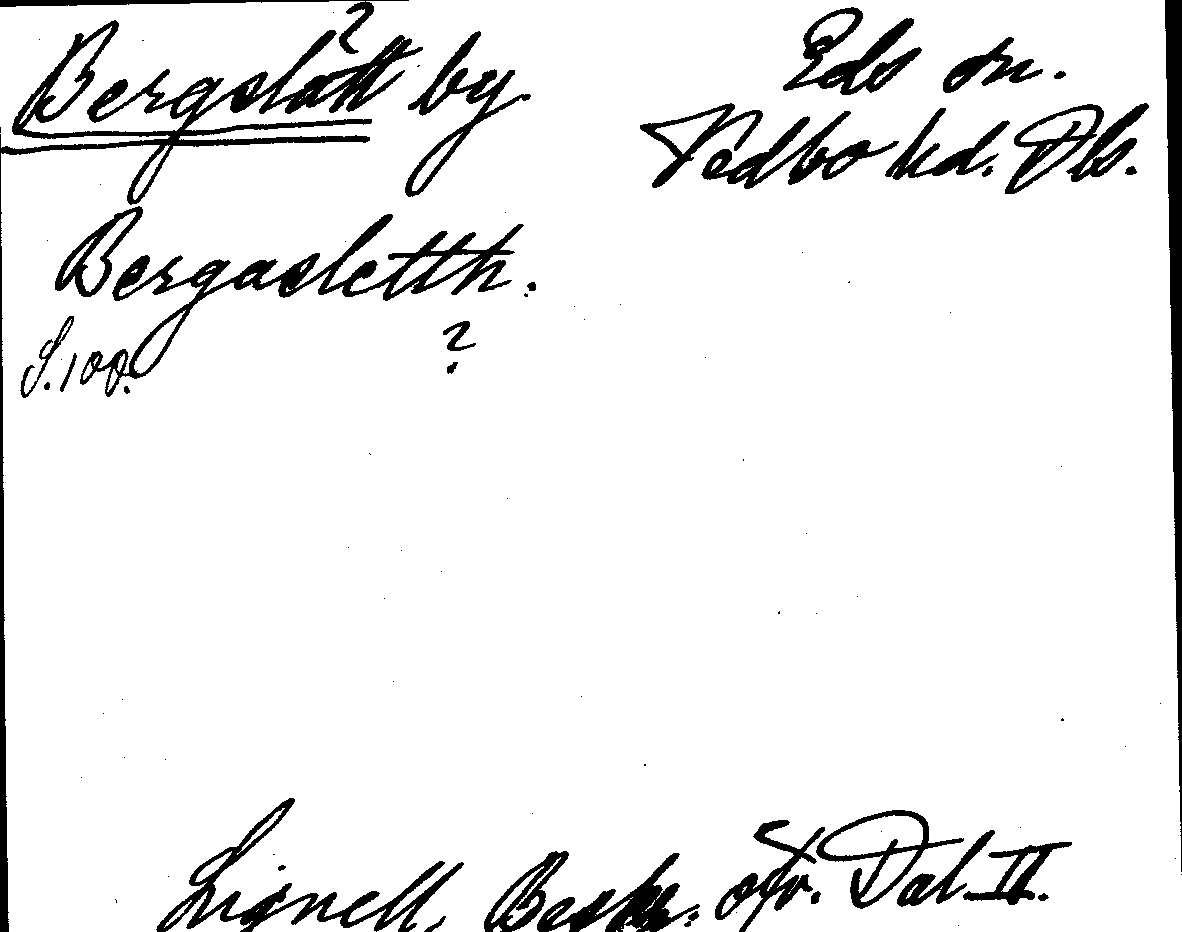 Bergslätt? by. Eds sn.
Vedbo hd. Dls.
Bergasletth.
S.100. ?
Lignell, Beskr. öfv. Dal. II.